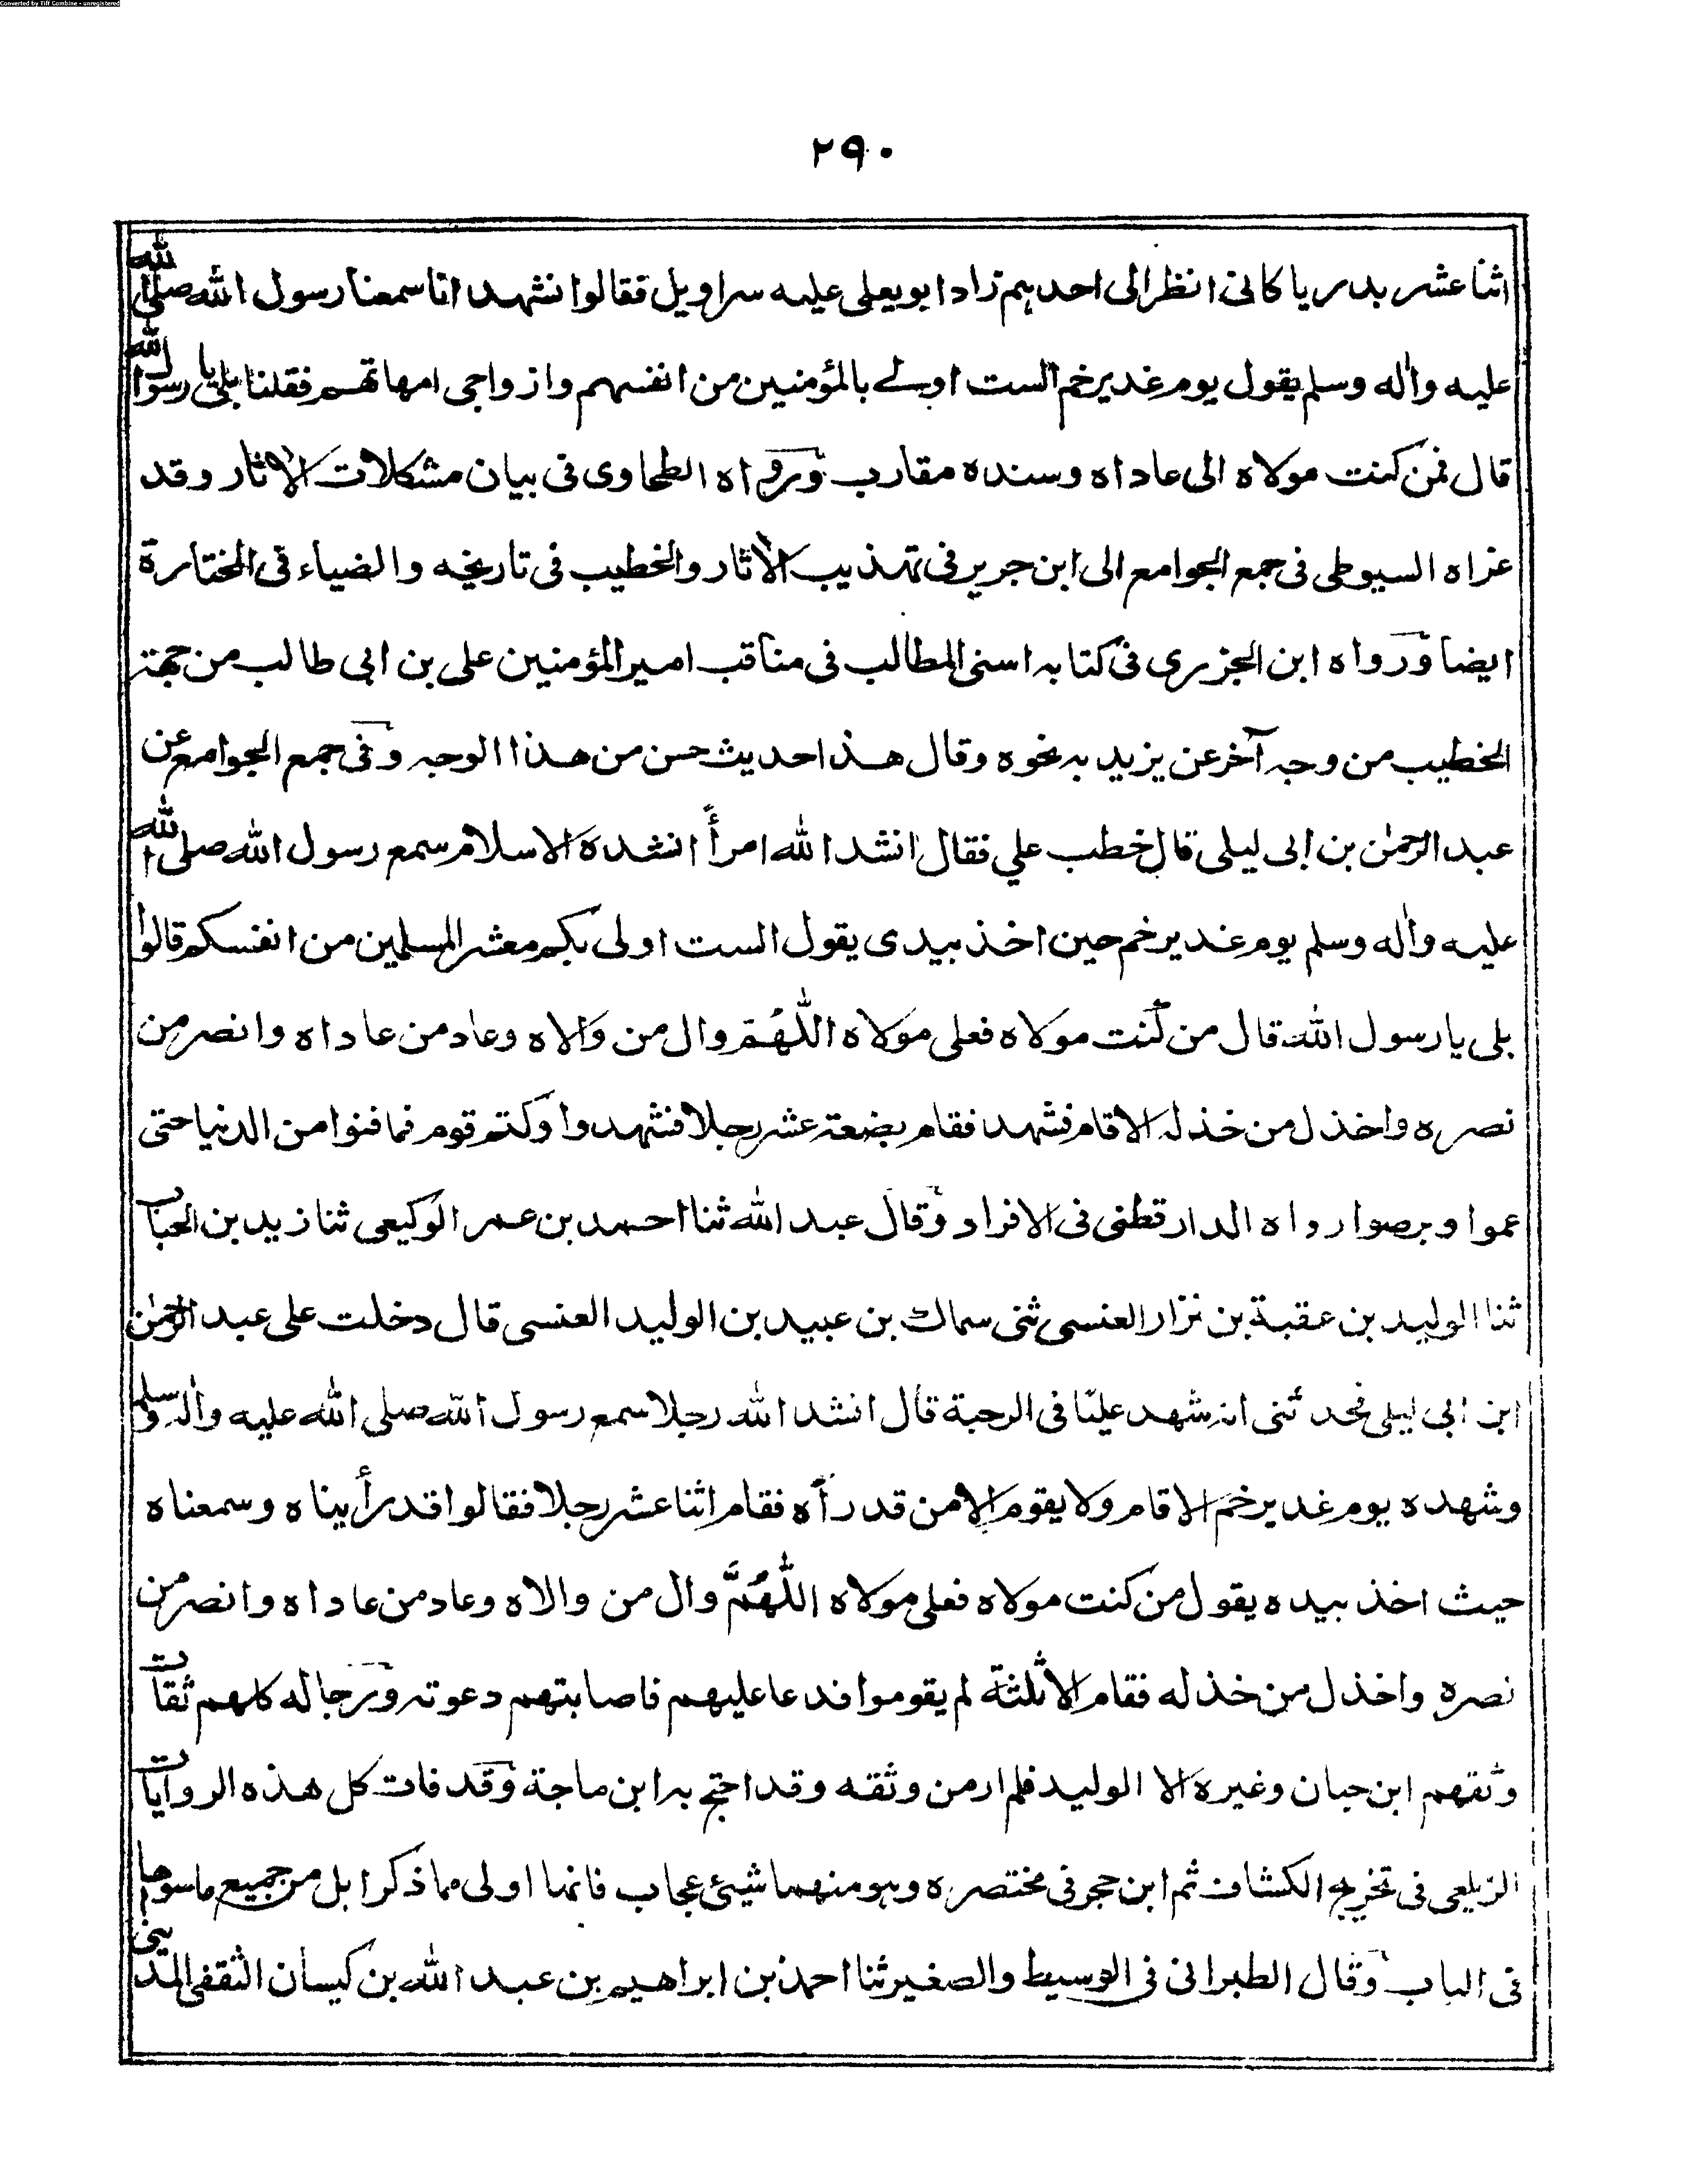 Converted by Tiff Combine - unregistered
٢٩٠
اثنا عشر بدريا كانى انظر الى احدهم زاد ابو يعلى عليه سراويل فقالوا نشهد انا سمعنا رسول الله صلى الله
عليه واٰله وسلم يقول يوم غدير خم الست اولے بالمؤمنين من انفسهم وازواجى امهاتهم فقلنا بلى يا رسول الله
قال فمن كنت مولاه الى عاداه وسنده مقارب ورواه الطحاوى فى بيان مشكلات الاٰثار وقد
عزاه السيوطى فى جمع الجوامع الى ابن جرير فى تهذيب الاٰثار والخطيب فى تاريخه والضياء فى المختارة
ايضا ورواه ابن الجزرى فى كتابه اسنى المطالب فى مناقب امير المؤمنين على بن ابى طالب من جهة
الخطيب من وجه آخر عن يزيد به نحوه وقال هذا حديث حسن من هذا الوجه وفى جمع الجوامع عن
عبد الرحمٰن بن ابى ليلى قال خطب علي فقال انشد الله امرأً انشده الاسلام سمع رسول الله صلى الله
عليه واٰله وسلم يوم غدير خم حين اخذ بيدى يقول الست اولى بكم معشر المسلمين من انفسكم قالوا
بلى يا رسول الله قال من كنت مولاه فعلى مولاه اللّٰهُمَّ وال من والاه وعاد من عاداه وانصر من
نصره واخذل من خذله الا قام فشهد فقام بضعة عشر رجلا فشهدوا وكتم قوم فما فنوا من الدنيا حتى
عموا وبرصوا رواه الدارقطنى فى الافراد وقال عبد الله ثنا احمد بن عمر الوكيعى ثنا زيد بن الحباب
ثنا الوليد بن عقبة بن نزار العنسى ثنى سماك بن عبيد بن الوليد العنسى قال دخلت على عبد الرحمٰن
ابن ابى ليلى فحدثنى انه شهد عليّا فى الرحبة قال انشد الله رجلا سمع رسول الله صلى الله عليه واٰله وسلم
وشهده يوم غدير خم الا قام ولا يقوم الا من قد رآه فقام اثنا عشر رجلا فقالوا قد رأيناه وسمعناه
حيث اخذ بيده يقول من كنت مولاه فعلى مولاه اللّٰهُمَّ وال من والاه وعاد من عاداه وانصر من
نصره واخذل من خذله فقام الا ثلٰثة لم يقوموا فدعا عليهم فاصابتهم دعوته ورجاله كلهم ثقات
وثقهم ابن حبان وغيره الا الوليد فلم ار من وثقه وقد احتج به ابن ماجة وقد فات كل هذه الروايات
الزيلعى فى تخريج الكشاف ثم ابن حجر فى مختصره وهو منهما شيئ عجاب فانها اولى مما ذكرا بل من جميع ما سوها
فى الباب وقال الطبرانى فى الوسيط والصغير ثنا احمد بن ابراهيم بن عبد الله بن كيسان الثقفى المدينى